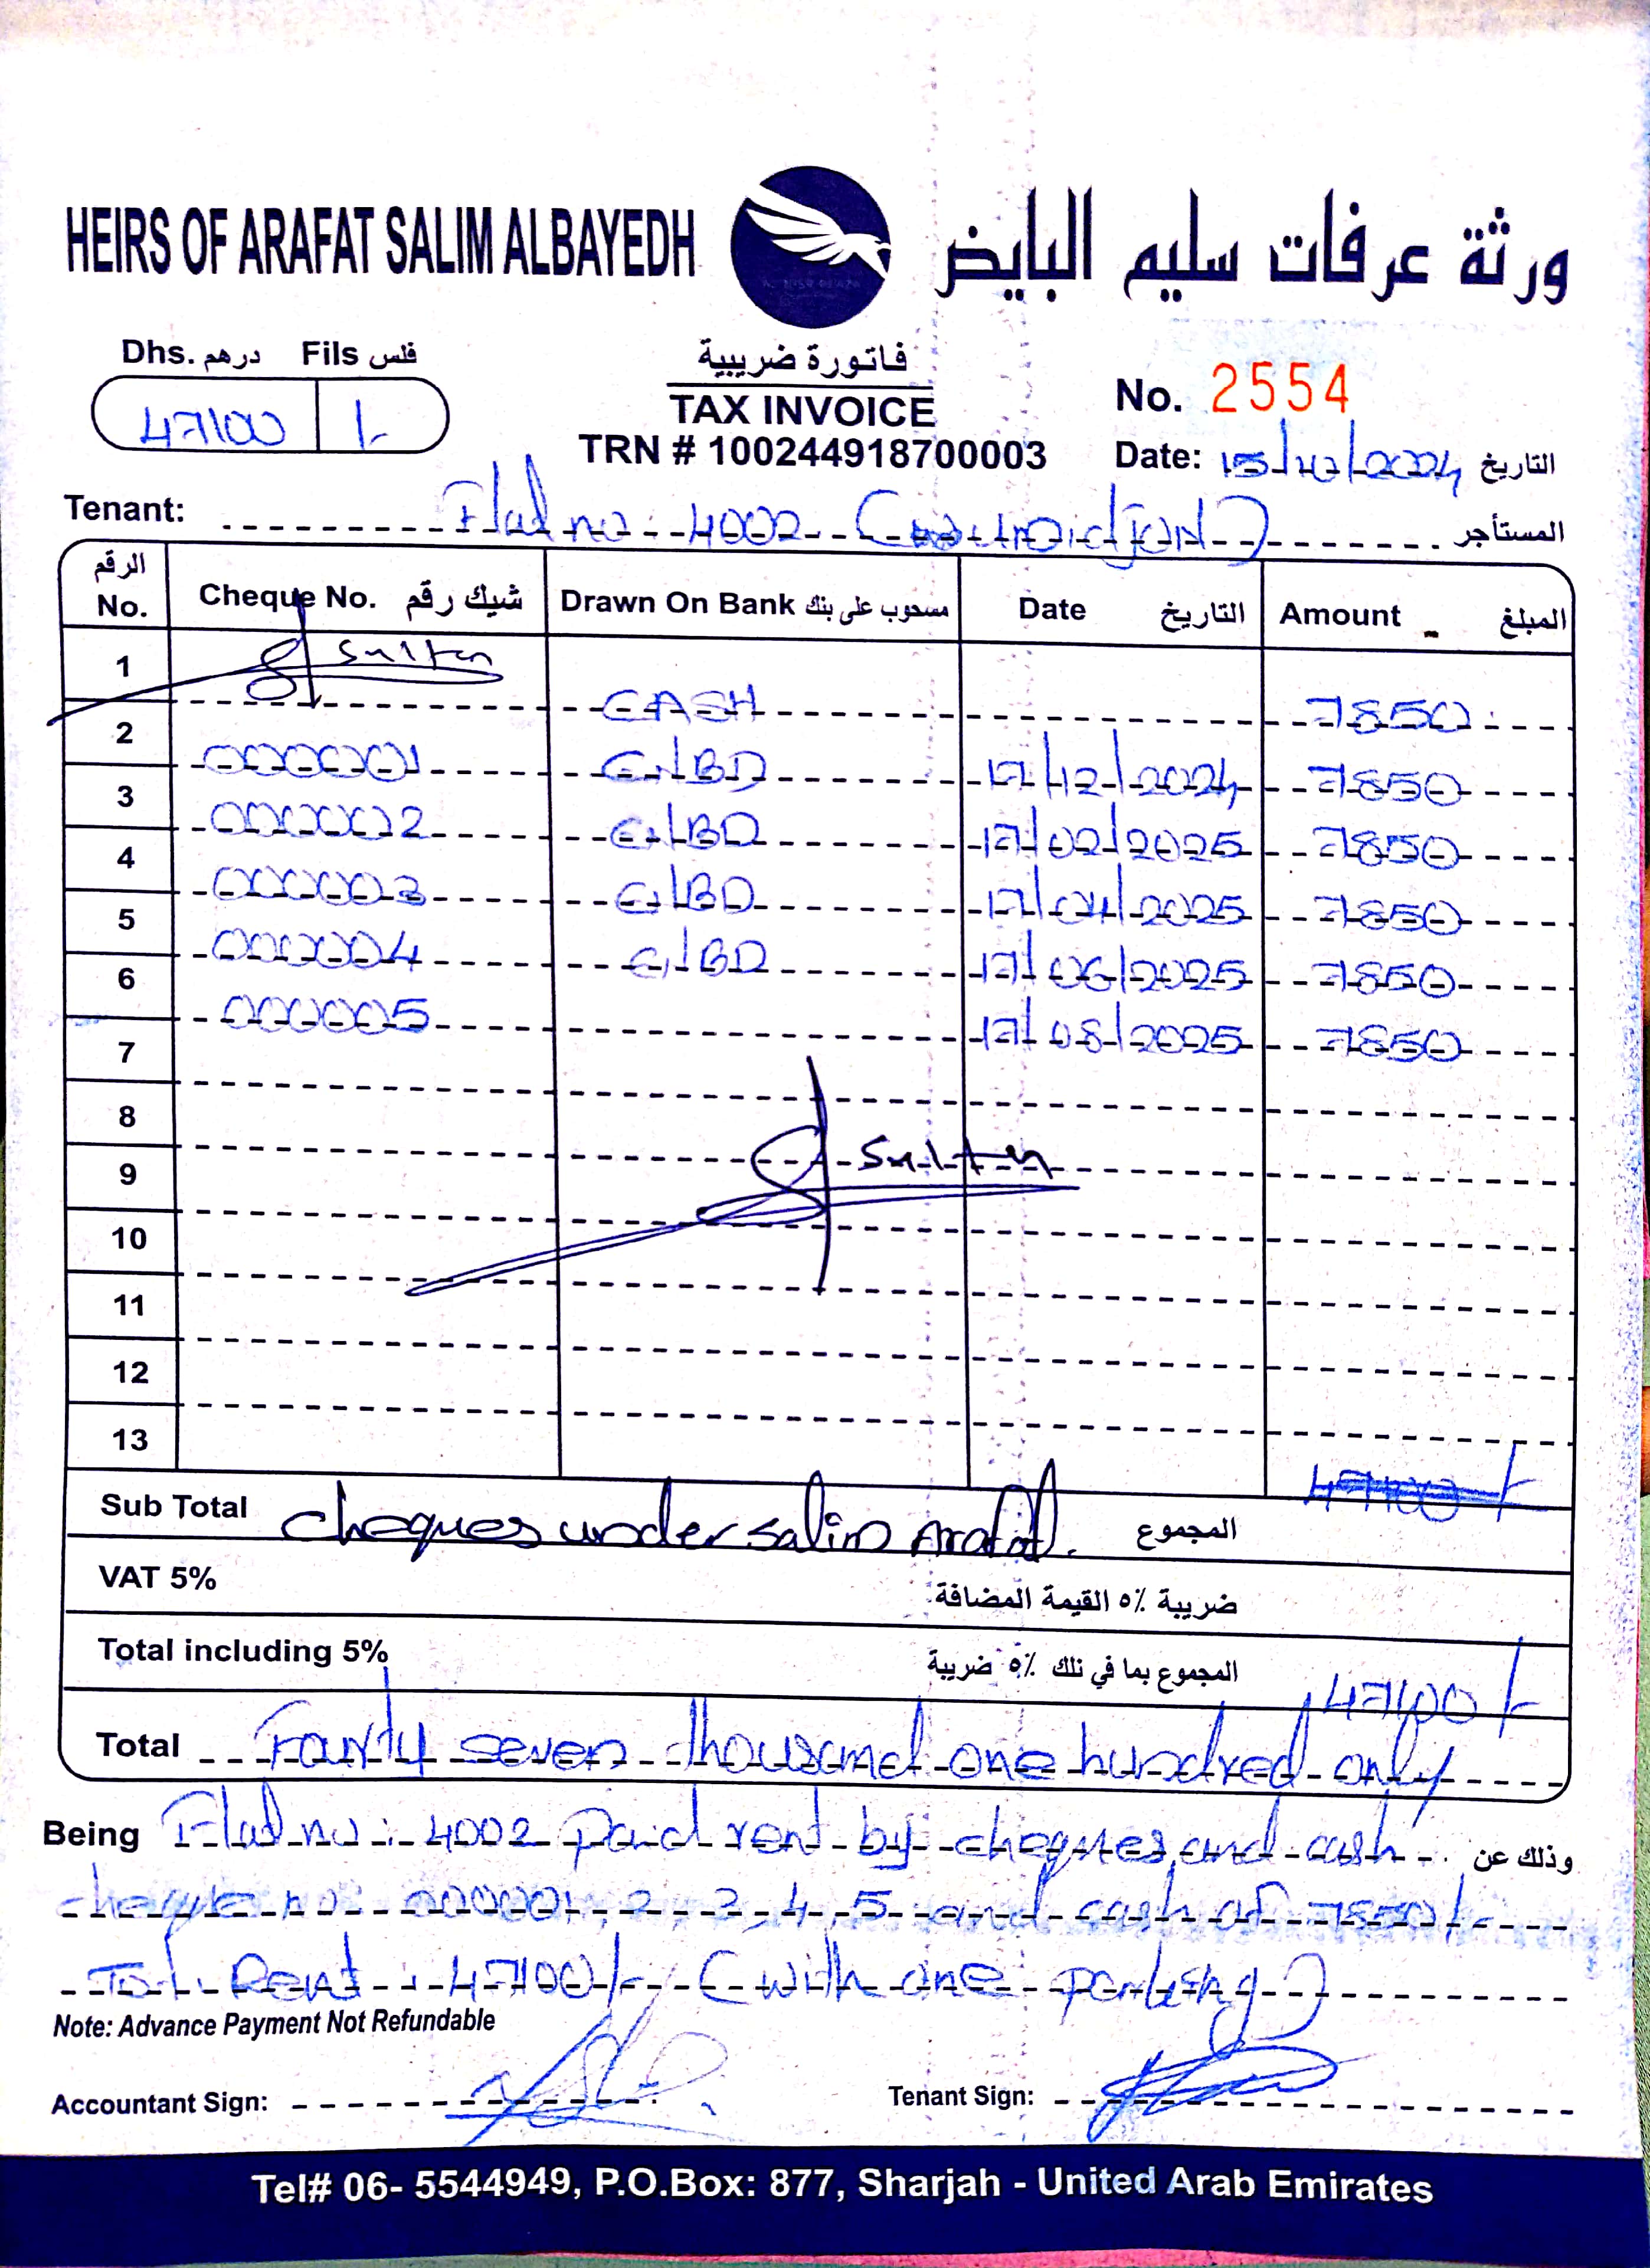 HEIRS OF ARAFAT SALIM ALBAYEDH
ورثة عرفات سليم البايض
Dhs. درهم Fils فلس
47100 /-
فاتورة ضريبية
TAX INVOICE
TRN # 100244918700003
No. 2554
Date: التاريخ
Tenant: Flat no 4002 المستأجر
الرقم No. Cheque No. شيك رقم Drawn On Bank مسحوب على بنك Date التاريخ Amount المبلغ
1 Sultan
CASH 7850
2
000001 17/12/2024 7850
3
000002 17/02/2025 7850
4
000003 17/04/2025 7850
5
000004 17/06/2025 7850
6
000005 17/08/2025 7850
7
8
Sultan
9
10
11
12
13
47100/-
Sub Total cheques under Salim Arafat. المجموع
VAT 5% ضريبة ٥٪ القيمة المضافة
Total including 5% المجموع بما في ذلك ٥٪ ضريبة 47100/-
Total Fourty seven thousand one hundred only
Being Flat no: 4002 paid rent by cheques and cash وذلك عن
cheque no: 000001, 2, 3, 4, 5 and cash of 7850/-
Rent: 47100/- (with one parking)
Note: Advance Payment Not Refundable
Accountant Sign: Tenant Sign:
Tel# 06- 5544949, P.O.Box: 877, Sharjah - United Arab Emirates